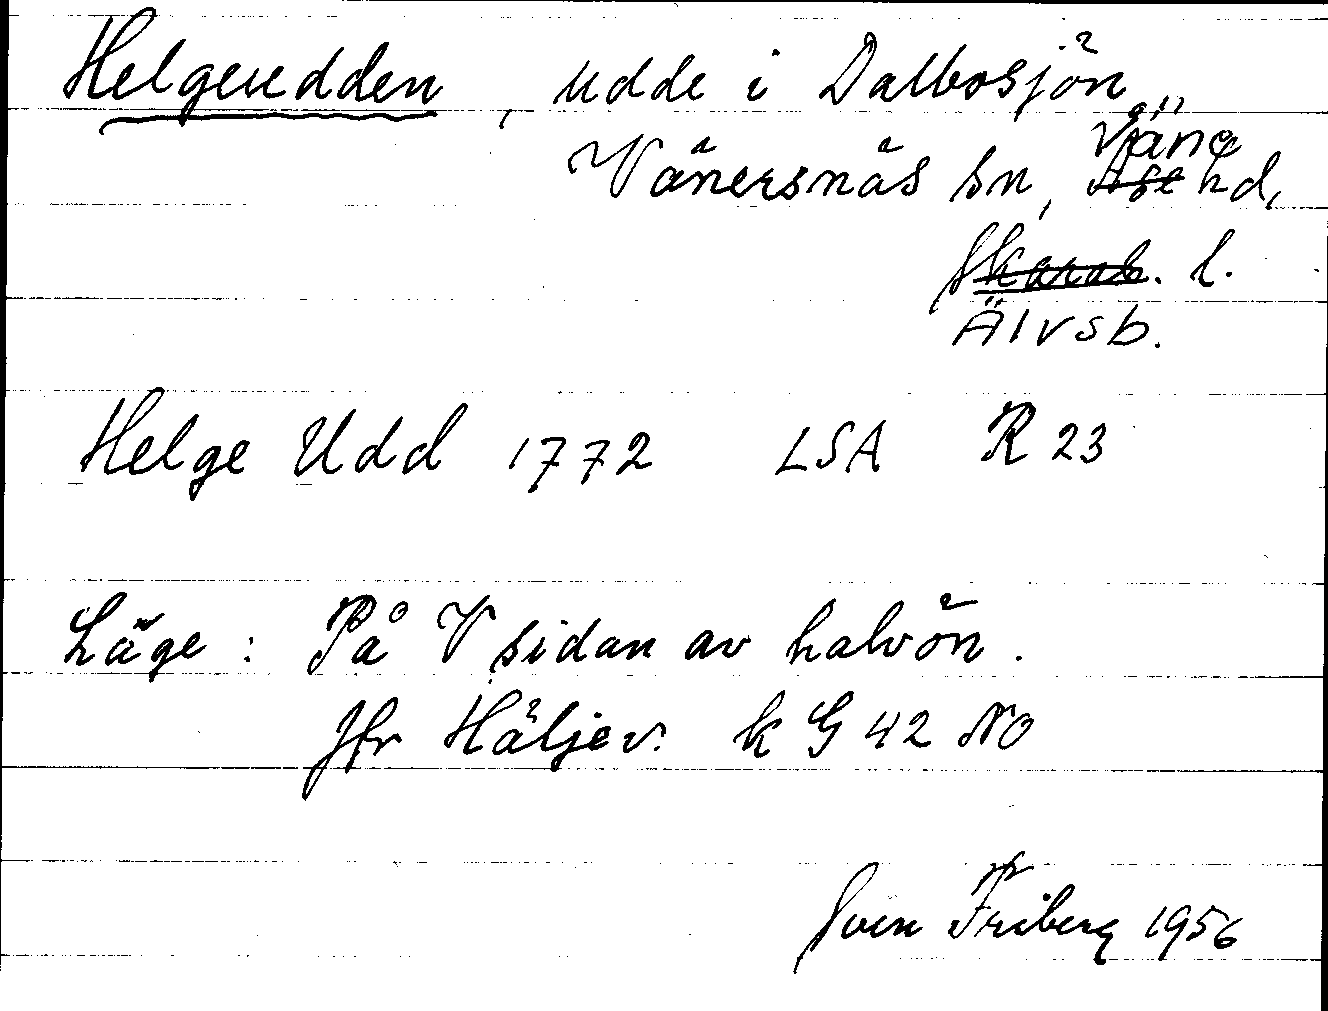 Helgeudden, udde i Dalbosjön
Väne
Vänersnäs sn, Åse hd,
Skarab. l.
Älvsb.
Helge Udd 1772 LSA R 23
Läge: På V sidan av halvön.
Jfr Häljev. k G 42 NO
Sven Friberg 1956